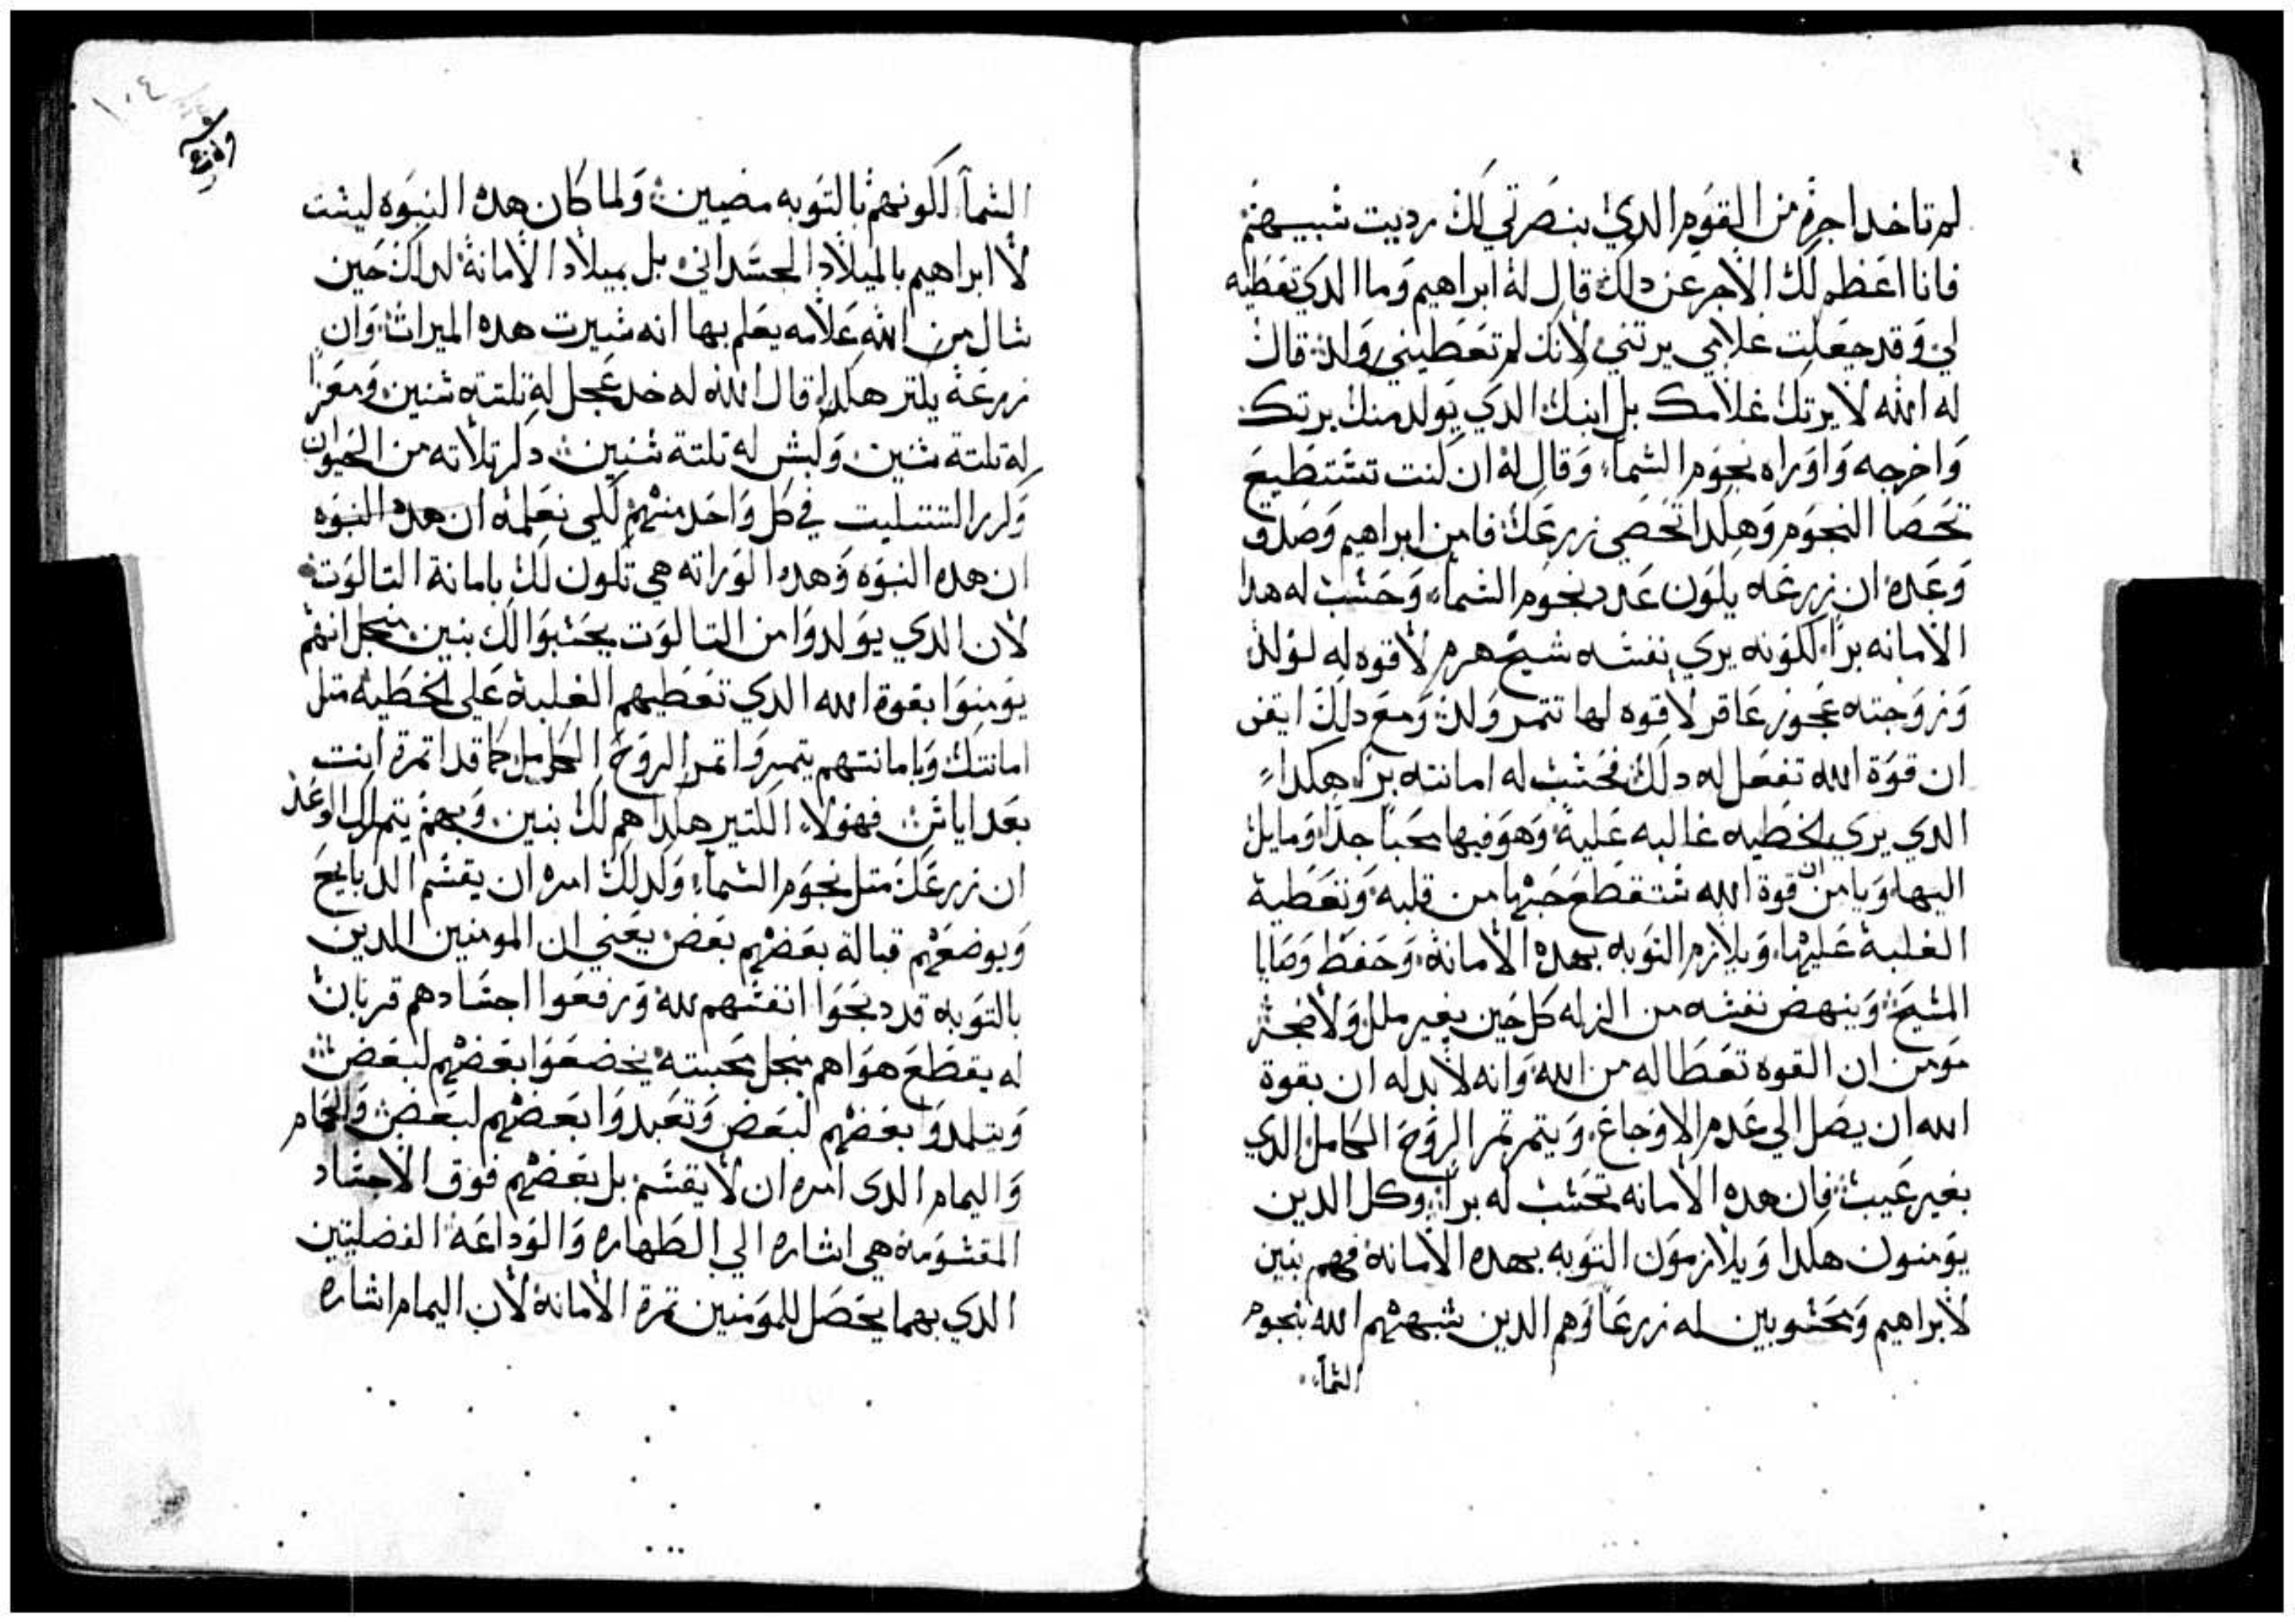 لم تاخد اجره من القوم الدي بنصرتي لك رديت شبيهم
فانا اعظم لك الاجر عن دلك قال له ابراهيم وما الدي تعطيه
لي وقد جعلت غلامي يرتني لانك لم تعطيني ولد قال
له الله لا يرتك غلامك بل ابنك الدي يولد منك يرتك
واخرجه واوراه نجوم الشما وقال له ان كنت تشتطيع
تحصا النجوم وهكدا تحصي زرعك فامن ابراهيم وصدق
وعده ان زرعه يكون عدد نجوم الشما وحشب له هدا
الامانه برا لكونه يري نفشه شيخ هرم لا قوه له لولد
وزوجته عجوز عاقر لا قوه لها تتمر ولد ومع دلك ايقن
ان قوة الله تفعل له دلك فحشب له امانته برا هكدا
الدي يري الخطيه غالبه عليه وهو فيها محبا جدا ومايل
اليها ويامن ان قوة الله شتقطع حبها من قلبه وتعطيه
الغلبة عليها ويلازم التوبه بهده الامانه وحفظ وصايا
المشيح وينهض نفشه من الزله كل حين بغير ملل ولا ضجر
مومن ان القوه تعطا له من الله وانه لا بد له ان بقوة
الله ان يصل الي عدم الاوجاع ويتمر تمر الروح الكامل الدي
بغير عيب فان هده الامانه تحشب له برا وكل الدين
يومنون هكدا ويلازمون التوبه بهده الامانه فهم بنين
لابراهيم ومحشوبين له زرعا وهم الدين شبههم الله بنجوم
الشما
١٠٤
الشما لكونهم بالتوبه مضيين ولما كان هده النبوه ليشت
لا ابراهيم بالميلاد الجشداني بل بميلاد الامانة لدلك حين
شال من الله علامه يعلم بها انه شيرت هده الميرات وان
زرعة يكتر هكدا قال الله له خد عجل له تلتته شنين ومعزا
له تلتة شنين وكبش له تلتة شنين دكر تلاته من الحيوان
وكرر التتليت في كل واحد منهم لكي نعلمه ان هده النبوه
ان هده النبوه وهده الوراته هي تكون لك بامانة التالوت
لان الدي يولدوا من التالوت يحشبوا لك بنين منجل انهم
يومنوا بقوة الله الدي تعطيهم الغلبة علي الخطيه متل
امانتك وبامانتهم يتمروا تمر الروح الكامل كما قد اتمرة انت
بعد اياش فهولا الكتير هكدا هم لك بنين وبهم يتم لك الوعد
ان زرعك متل نجوم الشما ولدلك امره ان يقشم الدبايح
ويوضعهم قبالة بعضهم بعض يعني ان المومنين الدين
بالتوبه قد دبحوا انفشهم لله ورفعوا اجشادهم قربان
له بقطع هواهم منجل محبته يخضعوا بعضهم لبعض
ويتلمدوا بعضهم لبعض وتعبدوا بعضهم لبعض والحمام
واليمام الدي امره ان لا يقشم بل بعضهم فوق الاجشاد
المقشومه هي اشاره الي الطهاره والوداعة الفضلتين
الدي بهما يحصل للمومنين تمرة الامانة لان اليمام اشاره